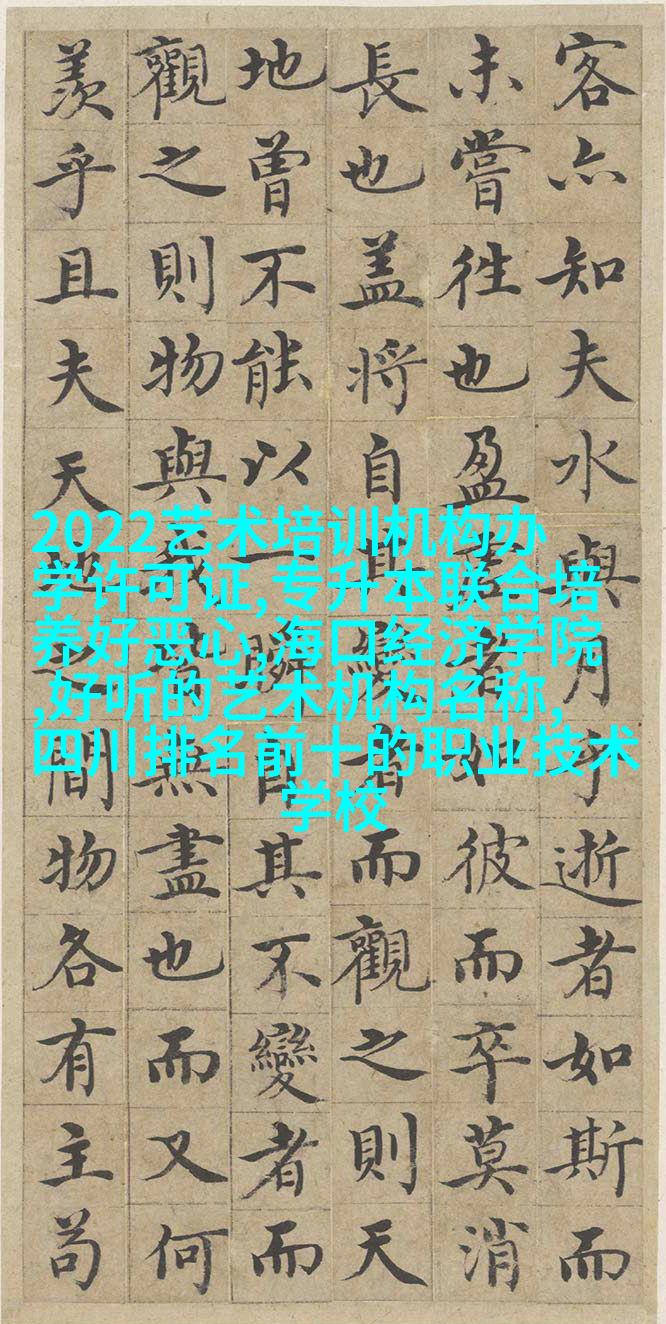 客亦知夫水與月乎逝者如斯而
未嘗往也盈虛者如彼而卒莫消
長也盖將自其變者而觀之則天
地曾不能以一瞬自其不變者而
觀之則物與我皆無盡也而又何
羨乎且夫天地之間物各有主苟
2022艺术培训机构办
学许可证,专升本联合培
养好恶心,海口经济学院
,好听的艺术机构名称,
四川排名前十的职业技术
学校